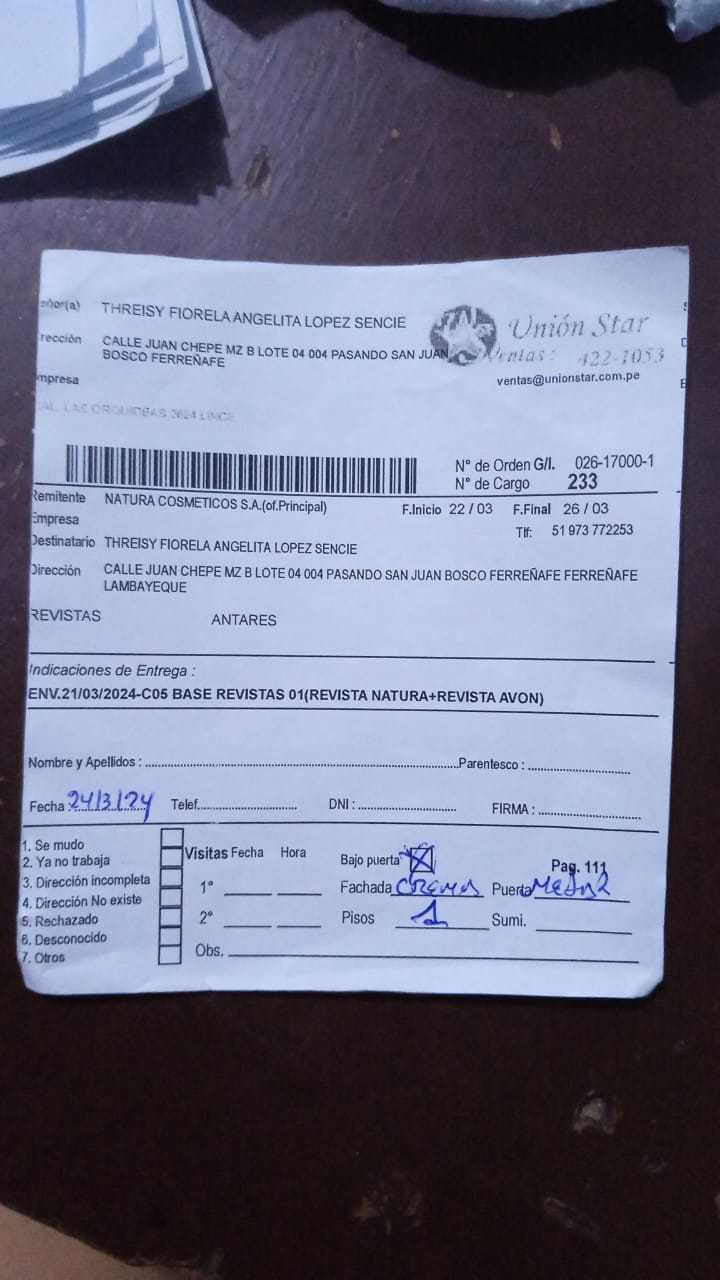 eñor(a) THREISY FIORELA ANGELITA LOPEZ SENCIE
rección CALLE JUAN CHEPE MZ B LOTE 04 004 PASANDO SAN JUAN
BOSCO FERREÑAFE
mpresa
Unión Star
Ventas: 422-1053
ventas@unionstar.com.pe
LAS ORQUIDEAS 2624 LINCE
N° de Orden G/I. 026-17000-1
N° de Cargo 233
Remitente NATURA COSMETICOS S.A.(of.Principal) F.Inicio 22 / 03 F.Final 26 / 03
Empresa Tlf: 51 973 772253
Destinatario THREISY FIORELA ANGELITA LOPEZ SENCIE
Dirección CALLE JUAN CHEPE MZ B LOTE 04 004 PASANDO SAN JUAN BOSCO FERREÑAFE FERREÑAFE
LAMBAYEQUE
REVISTAS ANTARES
Indicaciones de Entrega :
ENV.21/03/2024-C05 BASE REVISTAS 01(REVISTA NATURA+REVISTA AVON)
Nombre y Apellidos : Parentesco :
Fecha : 24/3/24 Telef. DNI : FIRMA :
1. Se mudo
2. Ya no trabaja
3. Dirección incompleta
4. Dirección No existe
5. Rechazado
6. Desconocido
7. Otros
Visitas Fecha Hora
1°
2°
Obs.
Bajo puerta X
Pag. 111
Fachada crema Puerta
Pisos 1 Sumi.